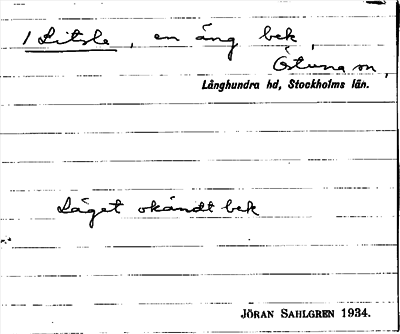 1 Litsla, en äng bek,
Östuna sn,
Långhundra hd, Stockholms län.
Läget okändt bek
JÖRAN SAHLGREN 1934.